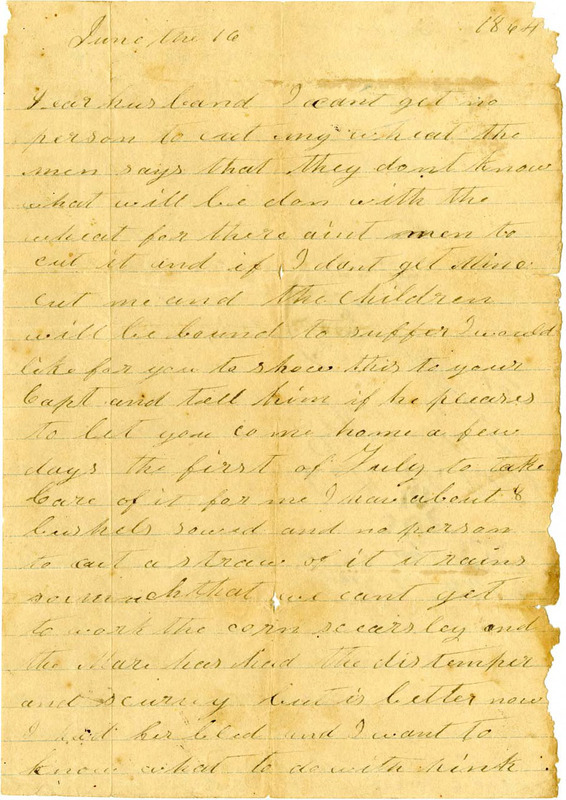 June the 16 1864
Dear husband I cant get no
person to cut my wheat the
men says that they dont know
what will be don with the
wheat for there aint men to
cut it and if I dont get Mine
cut me and the children
will be bound to suffer I would
like for you to show this to your
Capt and tell him if he pleases
to let you come home a few
days the first of July to take
Care of it for me I have about 8
bushels sowed and no person
to cut a straw of it it rains
so much that we cant get
to work the corn scearsley and
the Mare has had the distemper
and scurvy but is better now
I had her bled and I want to
know what to do with hink